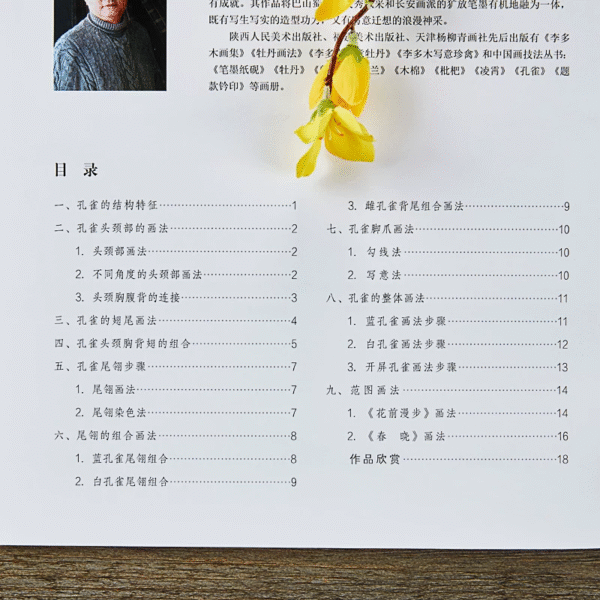 有成就。其作品将巴山蜀
秀
和长安画派的扩放笔墨有机地融为一体，
既有写生写实的造型功力，又有诗意迁想的浪漫神采。
陕西人民美术出版社、
美术出版社、天津杨柳青画社先后出版有《李多
木画集》《牡丹画法》《李多
牡丹》《李多木写意珍禽》和中国画技法丛书：
《笔墨纸砚》《牡丹》
兰》《木棉》《枇杷》《凌霄》《孔雀》《题
款钤印》等画册。
目 录
一、孔雀的结构特征……1
二、孔雀头颈部的画法……2
1. 头颈部画法……2
2. 不同角度的头颈部画法……2
3. 头颈胸腹背的连接……3
三、孔雀的短尾画法……4
四、孔雀头颈胸背翅的组合……5
五、孔雀尾翎步骤……7
1. 尾翎画法……7
2. 尾翎染色法……7
六、尾翎的组合画法……8
1. 蓝孔雀尾翎组合……8
2. 白孔雀尾翎组合……9
3. 雌孔雀背尾组合画法……9
七、孔雀脚爪画法……10
1. 勾线法……10
2. 写意法……10
八、孔雀的整体画法……11
1. 蓝孔雀画法步骤……11
2. 白孔雀画法步骤……12
3. 开屏孔雀画法步骤……13
九、范图画法……14
1. 《花前漫步》画法……14
2. 《春 晓》画法……16
作品欣赏……18